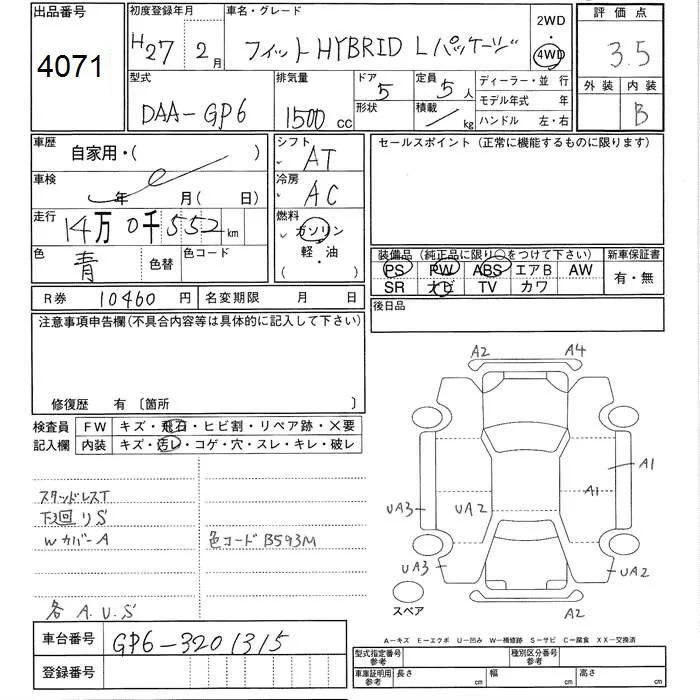 出品番号
4071
初度登録年月
H27年 2月
車名・グレード
フィット HYBRID L パッケージ
2WD
4WD
評価点
3.5
外装 内装
B
型式
DAA-GP6
排気量
1500 cc
ドア
5
形状
定員
5人
積載
kg
ディーラー・並行
モデル年式 年
ハンドル 左・右
車歴
自家用・( )
車検
年 月(日)
走行
14万0千552km
色
青
色替
色コード
シフト
AT
冷房
AC
燃料
ガソリン
・
軽・油
( )
セールスポイント (正常に機能するものに限ります)
装備品 (純正品に限り○をつけて下さい)
PS PW ABS エアB AW
SR ナビ TV カワ
新車保証書
有・無
後日品
R券 10460円 名変期限 月 日
注意事項申告欄(不具合内容等は具体的に記入して下さい)
修復歴 有 〔箇所 〕
検査員
記入欄
FW キズ・飛石・ヒビ割・リペア跡・×要
内装 キズ・汚レ・コゲ・穴・スレ・キレ・破レ
スタッドレスT
下廻リS
Wカバー A
色コード B593M
各 A.U.S
A2 A4
A1
A1
UA3 UA2
UA3 UA2
A2
スペア
車台番号 GP6-3201315
登録番号
A-キズ E-エクボ U-凹み W-補修跡 S-サビ C-腐食 XX-交換済
型式指定番号
参考
種別区分番号
参考
車庫証明用
参考
長さ cm 幅 cm 高さ cm